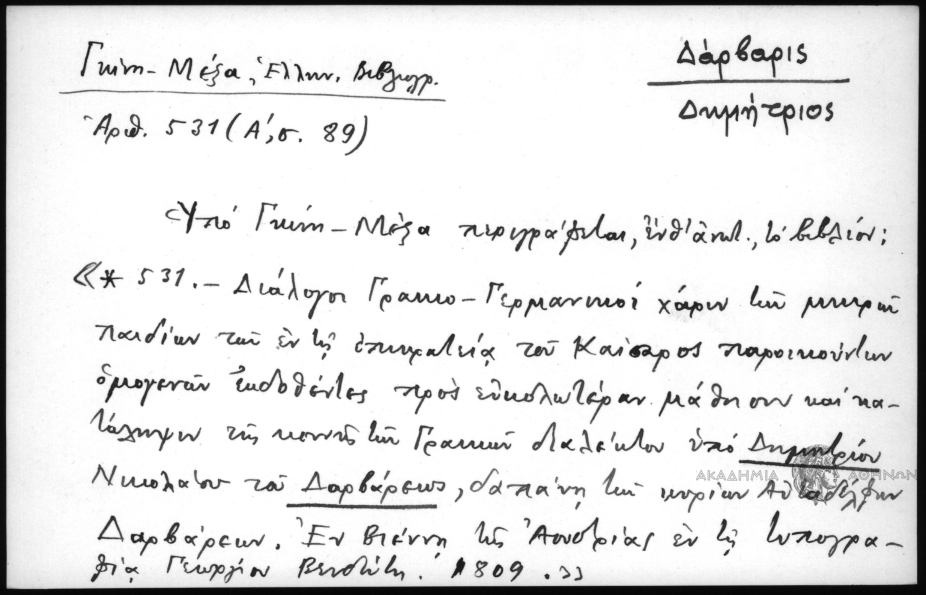 Γκίνη-Μέξα, Ἑλλην. Βιβλιογρ.
Δάρβαρις
Δημήτριος
Ἀριθ. 531 (Α΄, σ. 89)
Ὑπό Γκίνη-Μέξα περιγράφεται, ἔνθ' ἀνωτ., τό βιβλίον:
«* 531. – Διάλογοι Γραικο-Γερμανικοί χάριν τῶν μικρῶν
παιδίων τῶν ἐν τῇ ἐπικρατείᾳ τοῦ Καίσαρος παροικούντων
ὁμογενῶν ἐκδοθέντες πρός εὐκολωτέραν μάθησιν καί κα-
τάληψιν τῆς κοινῆς τῶν Γραικῶν διαλέκτου ὑπό Δημητρίου
Νικολάου τοῦ Δαρβάρεως, δαπάνῃ τῶν κυρίων Αὐταδέλφων
Δαρβάρεων. Ἐν Βιέννῃ τῆς Ἀουστρίας ἐν τῇ τυπογρα-
φίᾳ Γεωργίου Βενδότη. 1809.»
ΑΚΑΔΗΜΙΑ ΑΘΗΝΩΝ